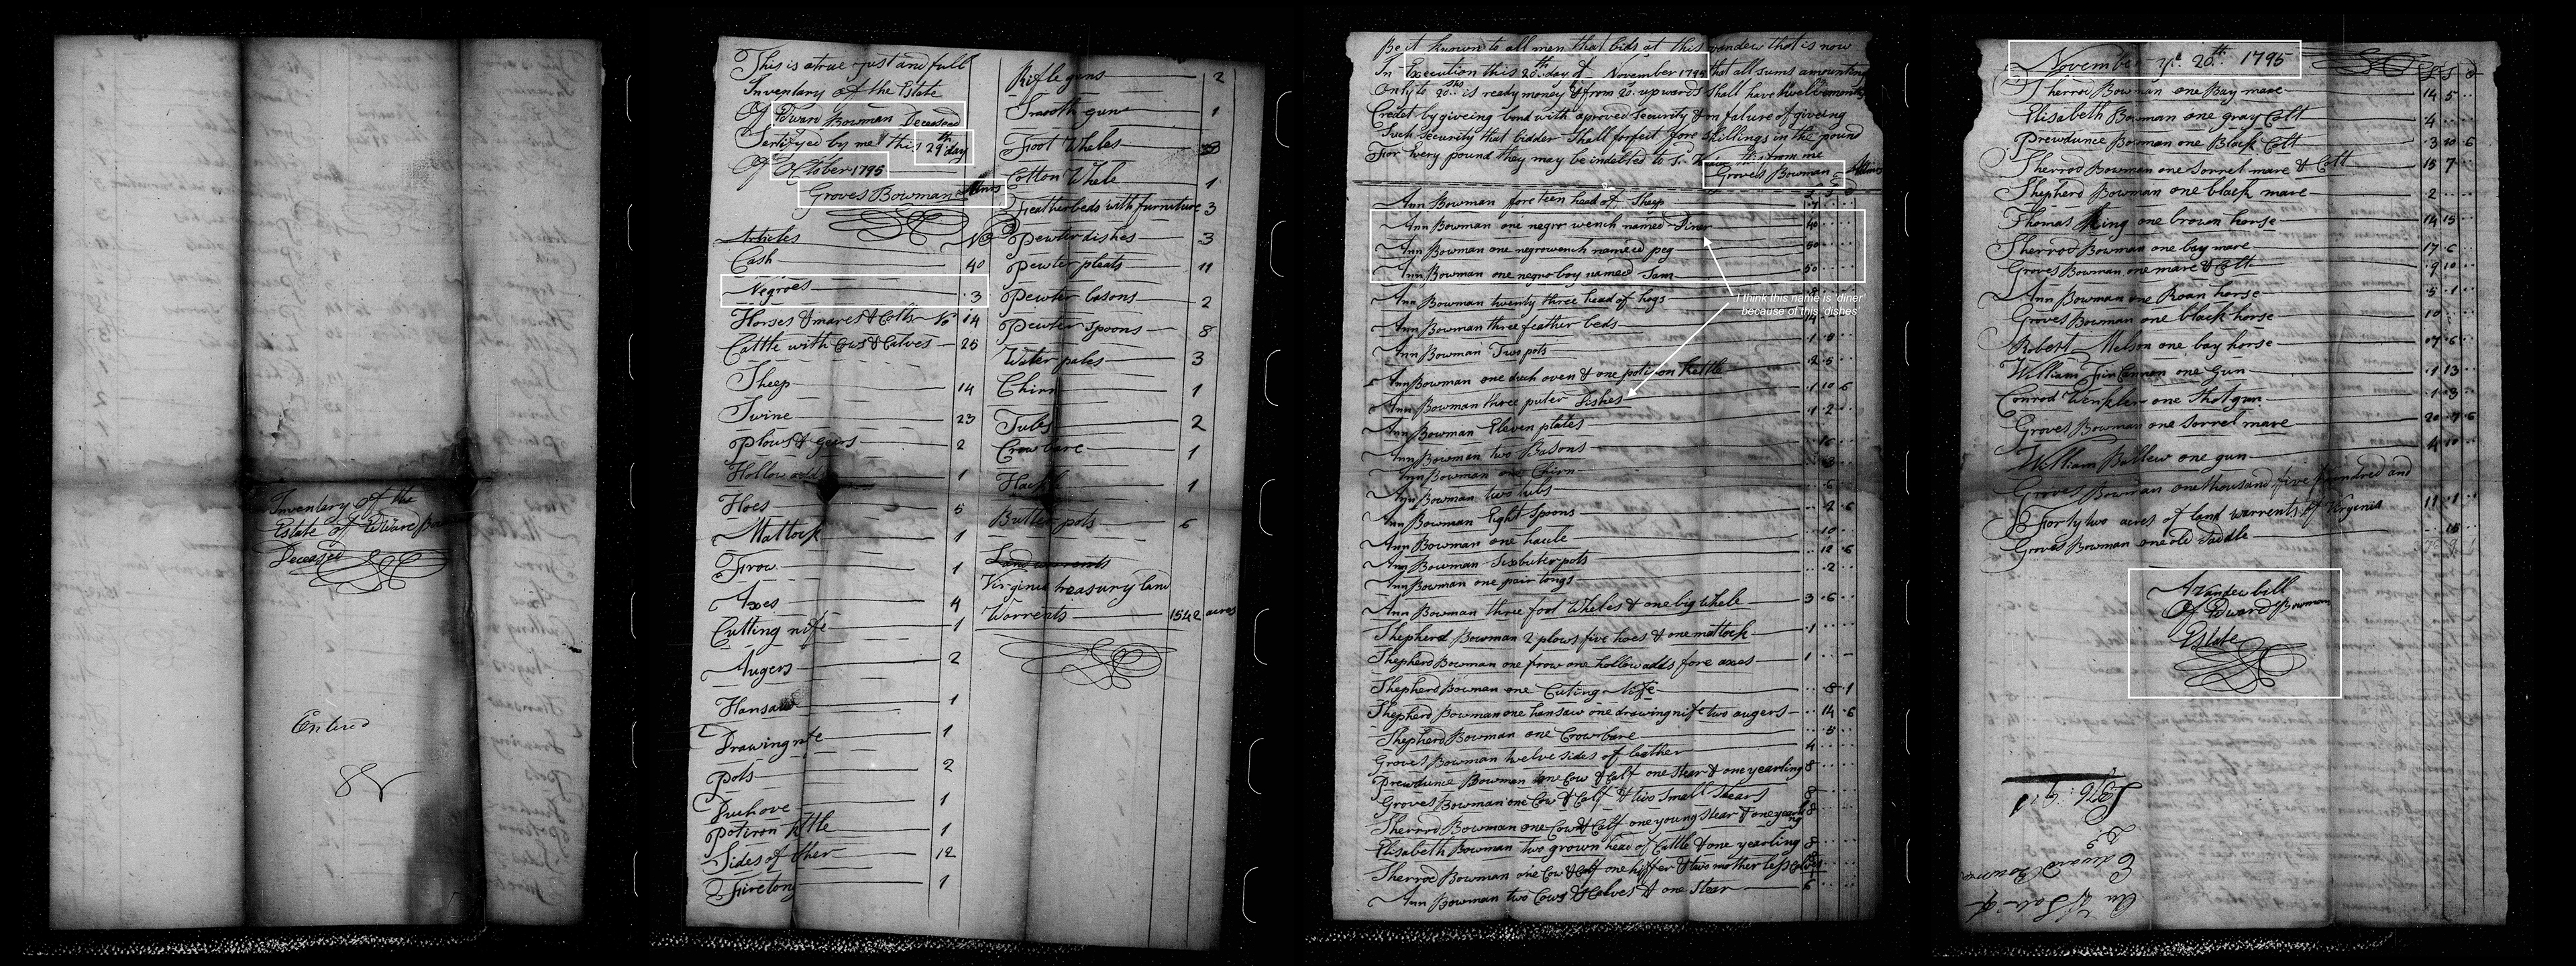 Inventary of the
Estate of Edward Bow
Deceased
Entered
This is a true just and full
Inventary of the Estate
Of Edward Bowman Deceased
Sertifyed by me this 29th day
Of October 1795
Groves Bowman Admr
Articles No
Cash 40
Negroes 3
Horses & mares & Colts No 14
Cattle with Cows & Calves 25
Sheep 14
Swine 23
Plows & gears 2
Hollow adds 1
Hoes 5
Mattock 1
Frow 1
Axes 4
Cutting nife 1
Augers 2
Hansaw 1
Drawing nife 1
Pots 2
Duch ove 1
Potiron kittle 1
Sides of ther 12
Firetong 1
Rifle guns 2
Smooth guns 1
Foot Wheles 3
Cotton Whele 1
Featherbeds with furniture 3
Pewter dishes 3
Pewter pleats 11
Pewter basons 2
Pewter Spoons 8
Water pales 3
Chirn 1
Tubs 2
Crow bare 1
Hack 1
Butter pots 6
Land warrents
Virginia treasury land
Warrents 1542 acres
Be it known to all men that bids at this vandew that is now
In Execution this 20th day of November 1795 that all sums amounting
Only to 20shs is ready money & from 20 upwards Shall have twelve months
Credet by giveing bond with aproved Security & in falure of giveing
Such Security that bidder Shall forfeit fore shillings in the pound
For Every pound they may be indebted to
Groves Bowman Admr
Ann Bowman fore teen head of Sheep
Ann Bowman one negro wench named Diner 40
Ann Bowman one negro wench named peg 50
Ann Bowman one negro boy named Sam 50
I think this name is 'diner'
because of this 'dishes'
Ann Bowman twenty three head of hogs
Ann Bowman three feather beds 14
Ann Bowman Two pots 1 0
Ann Bowman one duch oven & one potiron kettle 2 5
Ann Bowman three puter Dishes 1 10 6
Ann Bowman Eleven plates 1 2
Ann Bowman two Basons
Ann Bowman one Chirn
Ann Bowman two tubs 6
Ann Bowman Eight Spoons 2 6
Ann Bowman one hacle 10
Ann Bowman Six buter pots 12 6
Ann Bowman one pair tongs 2
Ann Bowman three foot Wheles & one big Whele 3 6
Shepherd Bowman 2 plows five hoes & one mattock 1
Shepherd Bowman one frow one hollow adds fore axes 1
Shepherd Bowman one Cuting Nife 8 1
Shepherd Bowman one hansaw one drawing nife two augers 14 6
Shepherd Bowman one Crow bare 5
Groves Bowman twelve sides of leather 4
Prewdunce Bowman one Cow & Calf one Stear & one yearling 8
Groves Bowman one Cow & Calf & two Small Stears 8
Sherrod Bowman one Cow & Calf one young Stear & one yearling 8
Elisabeth Bowman two grown head of Cattle & one yearling 8
Sherrod Bowman one Cow & Calf one hiffer & two mother less calves
Ann Bowman two Cows & Calves & one Stear 6
November ye 20th 1795
Sherrod Bowman one Bay mare 14 5
Elisabeth Bowman one gray Colt 4
Prewdunce Bowman one Black Colt 3 10 6
Sherrod Bowman one Sorrel mare & Colt 15 7
Shepherd Bowman one black mare 2
Thomas King one brown horse 14 15
Sherrod Bowman one bay mare 17 6
Groves Bowman one mare & Colt 9 10
Ann Bowman one Roan horse 5 1
Groves Bowman one black horse 10
Robert Melson one bay horse 07 6
William FinCannon one Gun 1 13
Conrod Wenkler one Shot gun 1 3
Groves Bowman one Sorrel mare 20 7 6
William Ballew one gun 4 10
Groves Bowman one thousand five hundred and
Forty two acres of land warrents of Virginia 11 1
Groves Bowman one old Saddle 15
A Vandew bill
Of Edward Bowmans
Estate
Edward Bowman